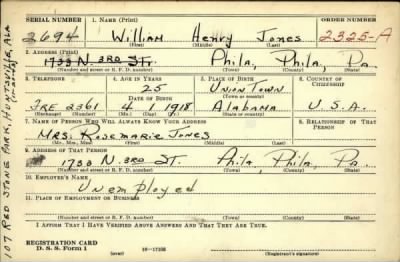 SERIAL NUMBER 1. NAME (Print) ORDER NUMBER
2694 William Henry Jones 2325-A
(First) (Middle) (Last)
2. ADDRESS (Print)
1733 N. 3RD ST. Phila, Phila, Pa.
(Number and street or R. F. D. number) (Town) (County) (State)
3. TELEPHONE 4. AGE IN YEARS 5. PLACE OF BIRTH 6. COUNTRY OF CITIZENSHIP
25 Union Town
(Town or county)
DATE OF BIRTH
FRE 2361 4 1 1918 Alabama U.S.A.
(Exchange) (Number) (Mo.) (Day) (Yr.) (State or country)
7. NAME OF PERSON WHO WILL ALWAYS KNOW YOUR ADDRESS 8. RELATIONSHIP OF THAT PERSON
Mrs. Rosemarie Jones
(Mr., Mrs., Miss) (First) (Middle) (Last)
9. ADDRESS OF THAT PERSON
1733 N. 3RD ST. Phila, Phila, Pa.
(Number and street or R. F. D. number) (Town) (County) (State)
10. EMPLOYER'S NAME
Unemployed
11. PLACE OF EMPLOYMENT OR BUSINESS
(Number and street or R. F. D. number) (Town) (County) (State)
I AFFIRM THAT I HAVE VERIFIED ABOVE ANSWERS AND THAT THEY ARE TRUE.
REGISTRATION CARD
D. S. S. Form 1 (over) (Registrant's signature)
107 RED STONE PARK, HUNTSVILLE, ALA